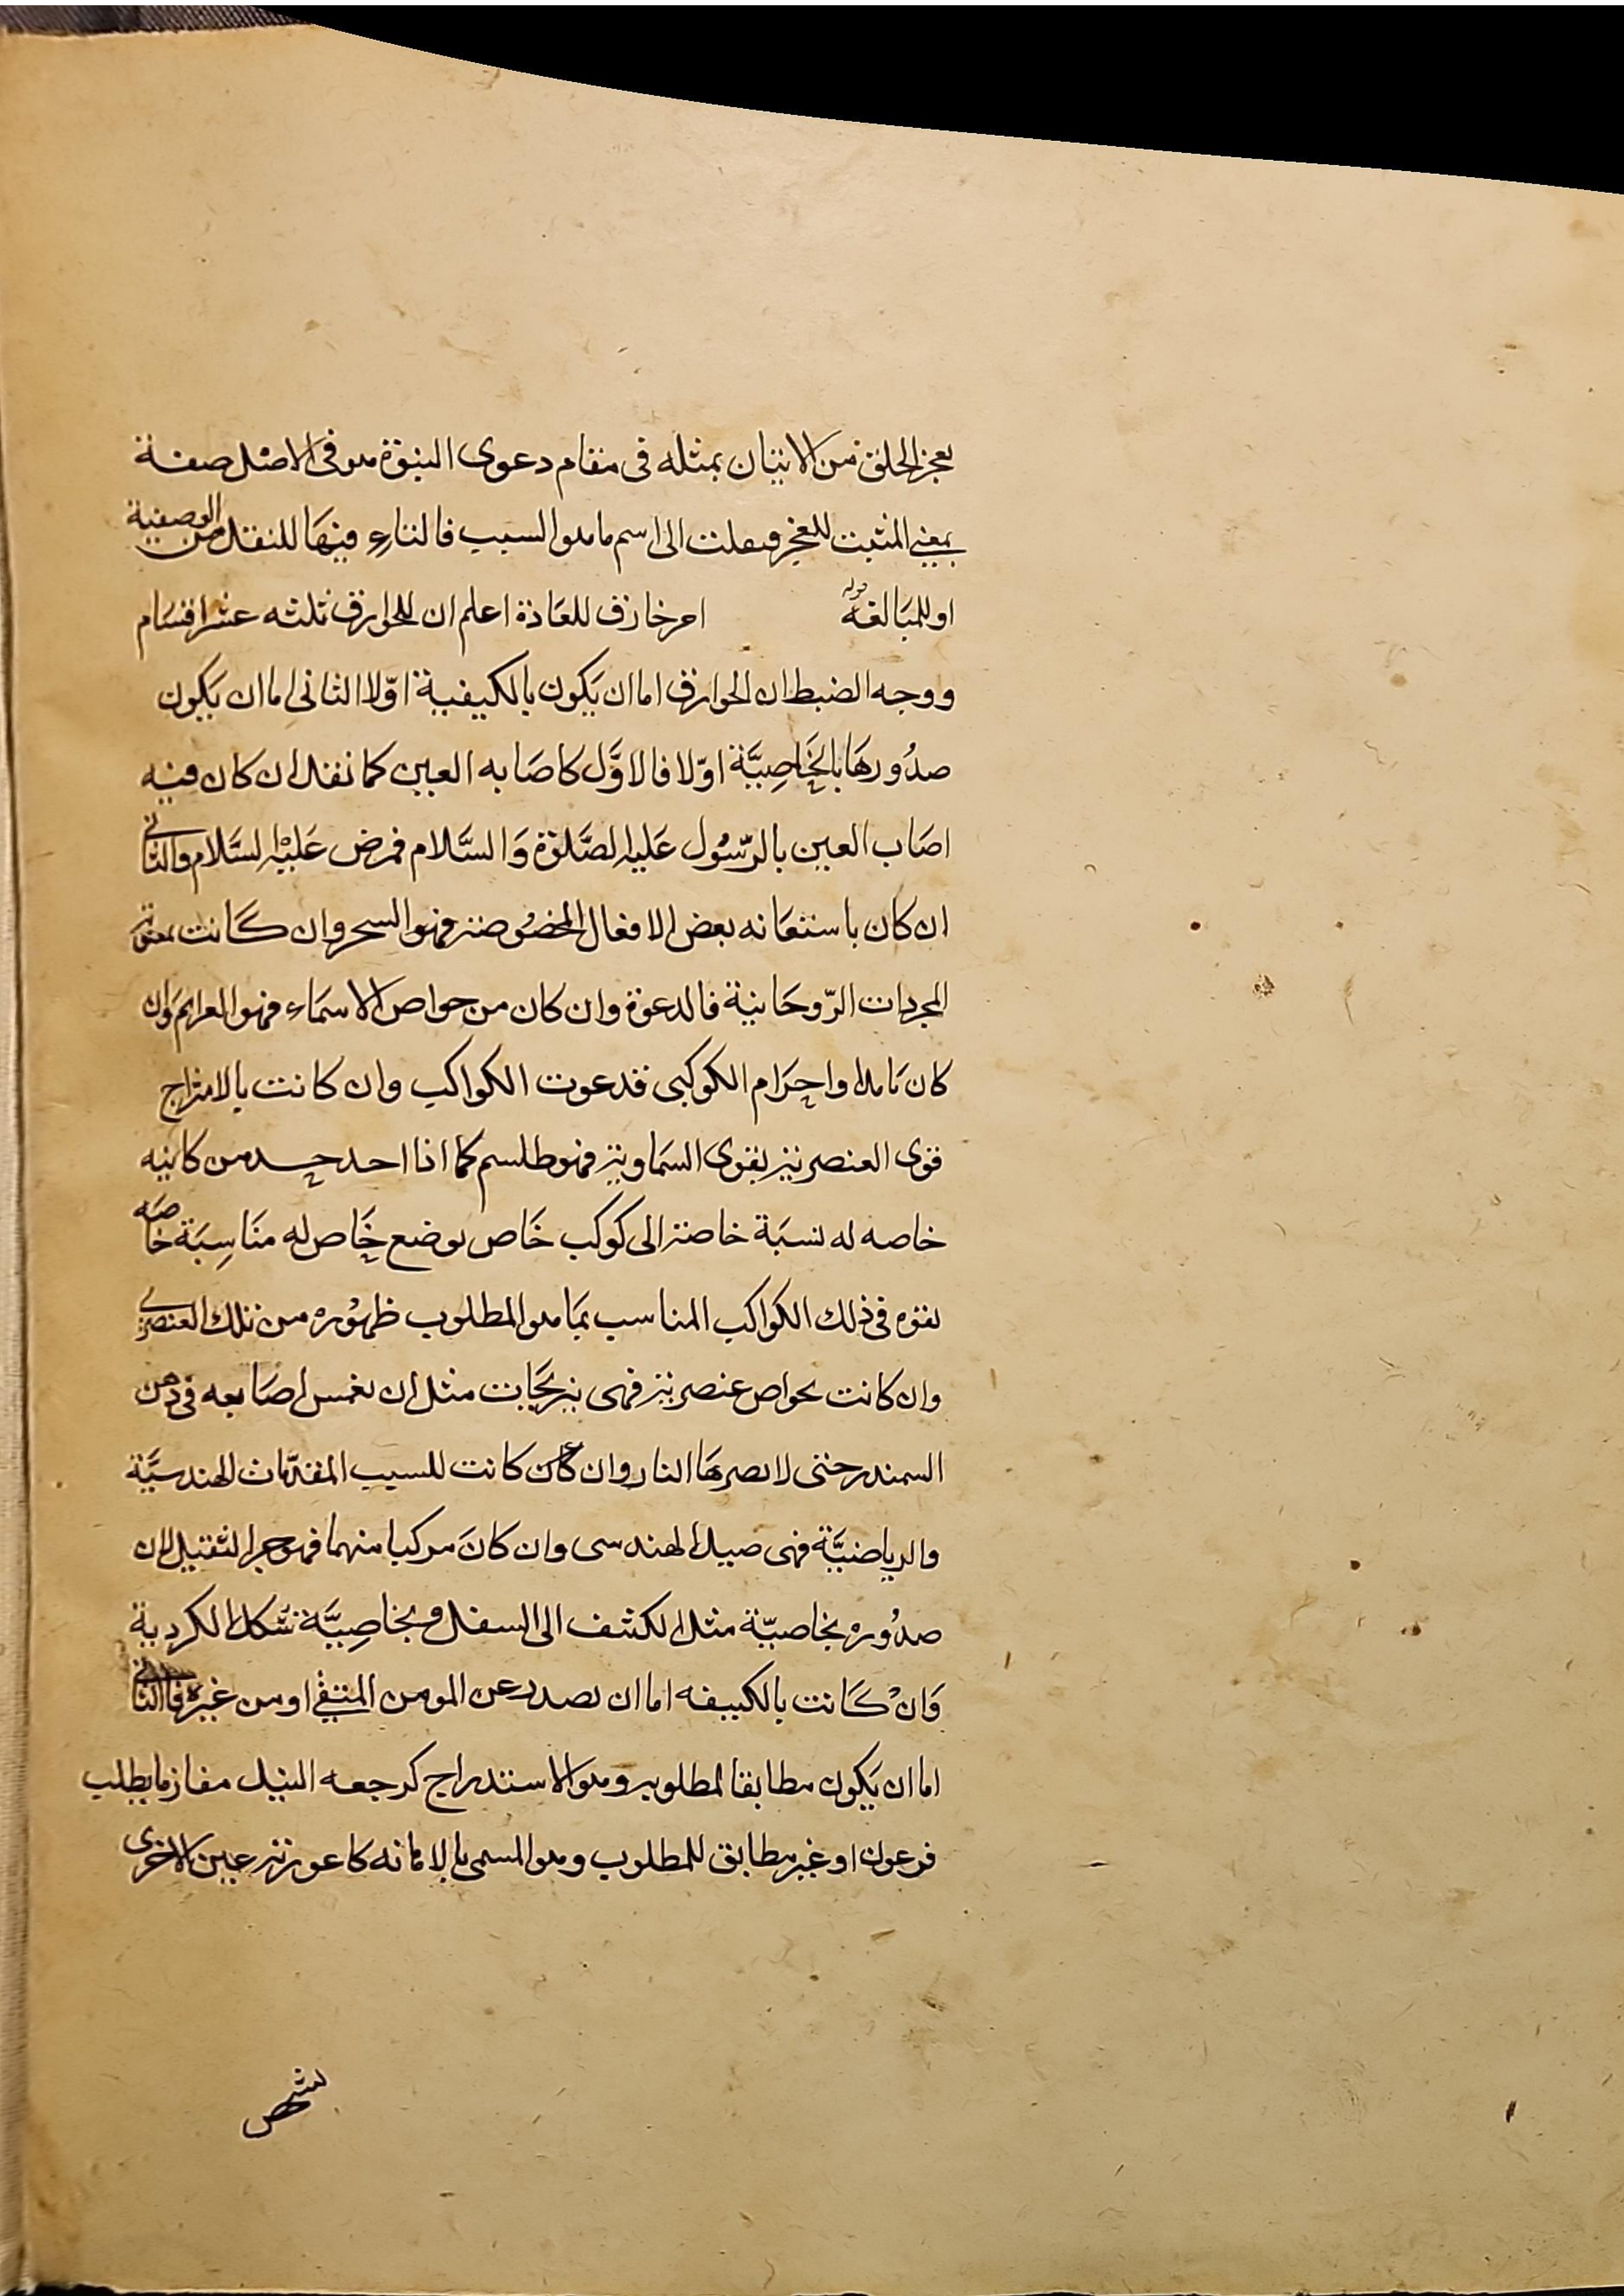 يعجز الخلق من الاتيان بمثله فى مقام دعوى النبوة هو فى الاصل صفة
بمعنى المثبت للعجز فنقلت الى اسم ما هو السبب فالتاء فيها للنقل من الوصفية
او للمبالغة قوله امر خارق للعادة اعلم ان للخوارق ثلثه عشر اقسام
ووجه الضبط ان الخوارق اما ان يكون بالكيفية اولا الثانى اما ان يكون
صدورها بالخاصية اولا فالاول كاصابه العين كما نقل ان كان فيه
اصاب العين بالرسول عليه الصلوة والسلام فمرض عليه السلام والثانى
ان كان باستعانه بعض الافعال المخصوصة فهو السحر وان كانت
المجردات الروحانية فالدعوة وان كان من خواص الاسماء فهو العزايم وان
كان واجرام الكوكبى فدعوت الكواكب وان كانت بالامتزاج
قوى العنصرية بقوى السماوية فهو طلسم كما اذا احد من
خاصه له نسبة خاصة الى كوكب خاص بوضع خاص له مناسبة خاصه
بقوه فى ذلك الكواكب المناسب بما هو المطلوب ظهوره من تلك العنصرى
وان كانت بخواص عنصرية فهى نيرنجات مثل ان يغمس اصابعه فى دهن
السمندر حتى لا يضرها النار وان كان كانت للسبب المقدمات الهندسية
والرياضية فهى حيل الهندسى وان كان مركبا منهما فهو جر الثقيل لان
صدوره بخاصية مثل الكشف الى السفل وبخاصية شكل الكردية
وان كانت بالكيفه اما ان يصدر عن المومن المتقى او من غيره فالثانى
اما ان يكون مطابقا لمطلوبه وهو الاستدراج كرجعه النيل مقارنا بطلب
فرعون او غير مطابق للمطلوب وهو المسمى بالاهانه كاعورية عين الاخرى